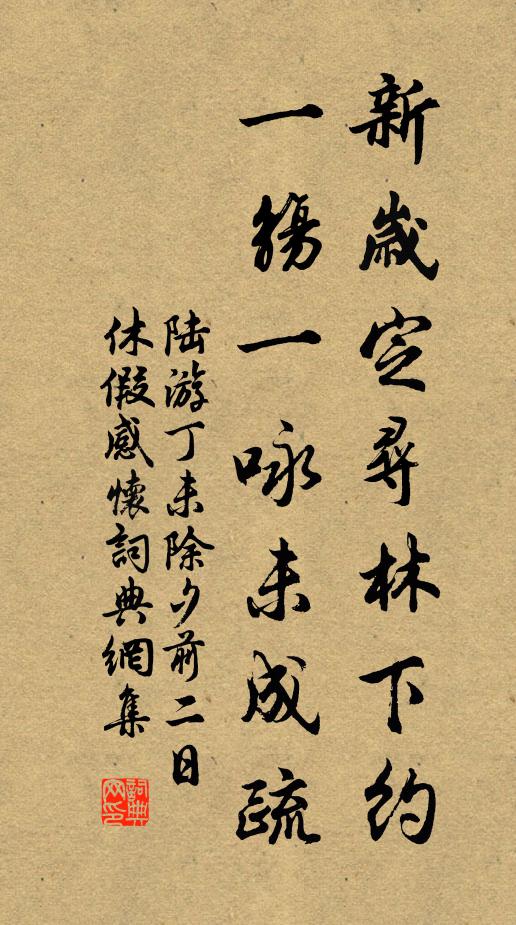 新歲定尋林下約
一觴一咏未成疏
陆游丁未除夕前二日
休假感懷詞典網集
詞典
网印